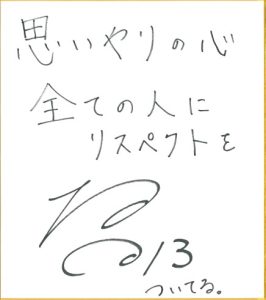 思いやりの心
全ての人に
リスペクトを
/13
ついてる。